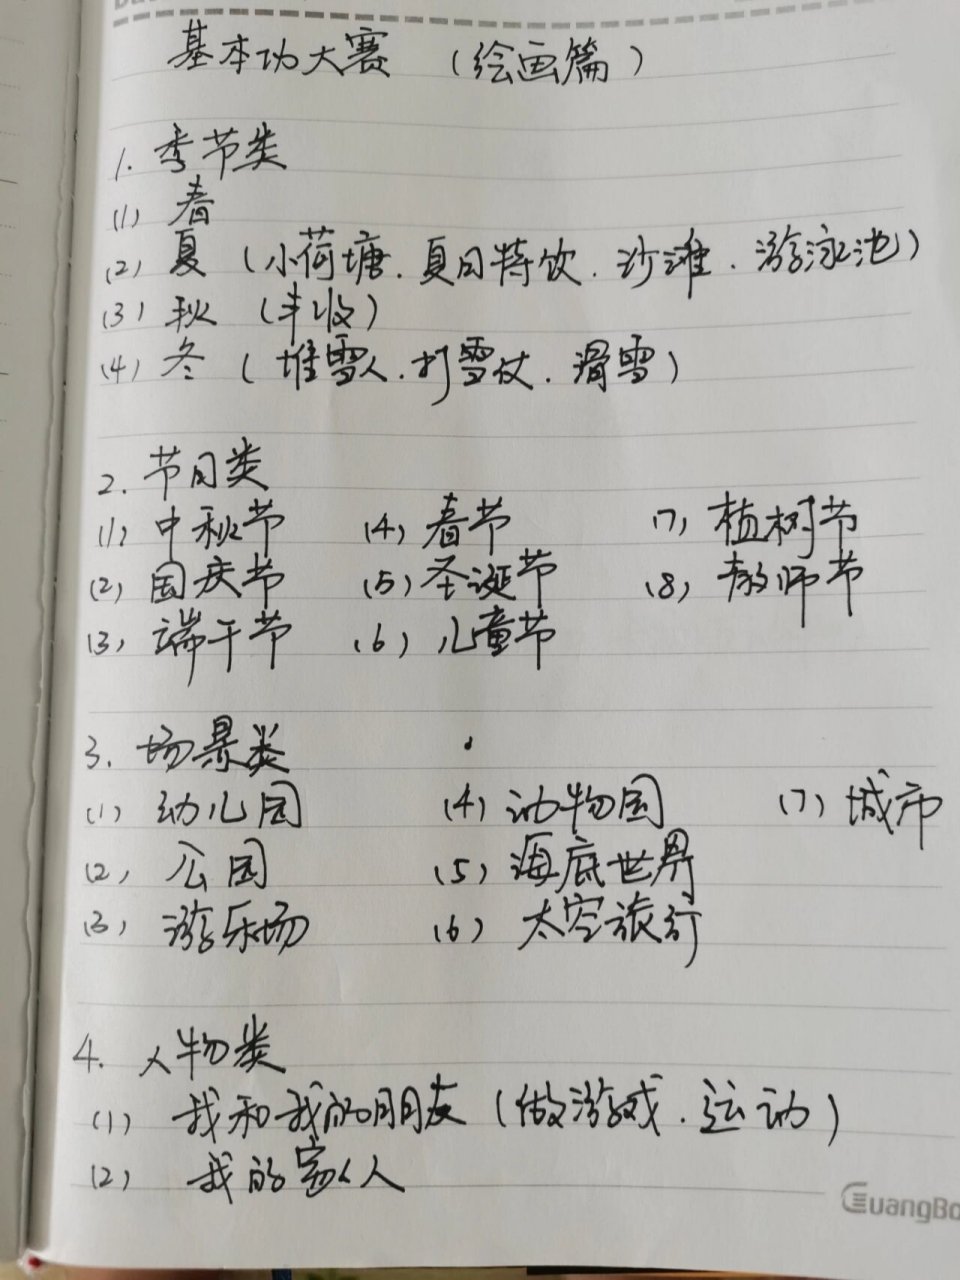 基本功大赛 (绘画篇)
1. 季节类
(1) 春
(2) 夏 (小荷塘.夏日特饮.沙滩.游泳池)
(3) 秋 (丰收)
(4) 冬 (堆雪人.打雪仗.滑雪)
2. 节日类
(1) 中秋节 (4) 春节 (7) 植树节
(2) 国庆节 (5) 圣诞节 (8) 教师节
(3) 端午节 (6) 儿童节
3. 场景类
(1) 幼儿园 (4) 动物园 (7) 城市
(2) 公园 (5) 海底世界
(3) 游乐场 (6) 太空旅行
4. 人物类
(1) 我和我的朋友 (做游戏.运动)
(2) 我的家人
GuangBo